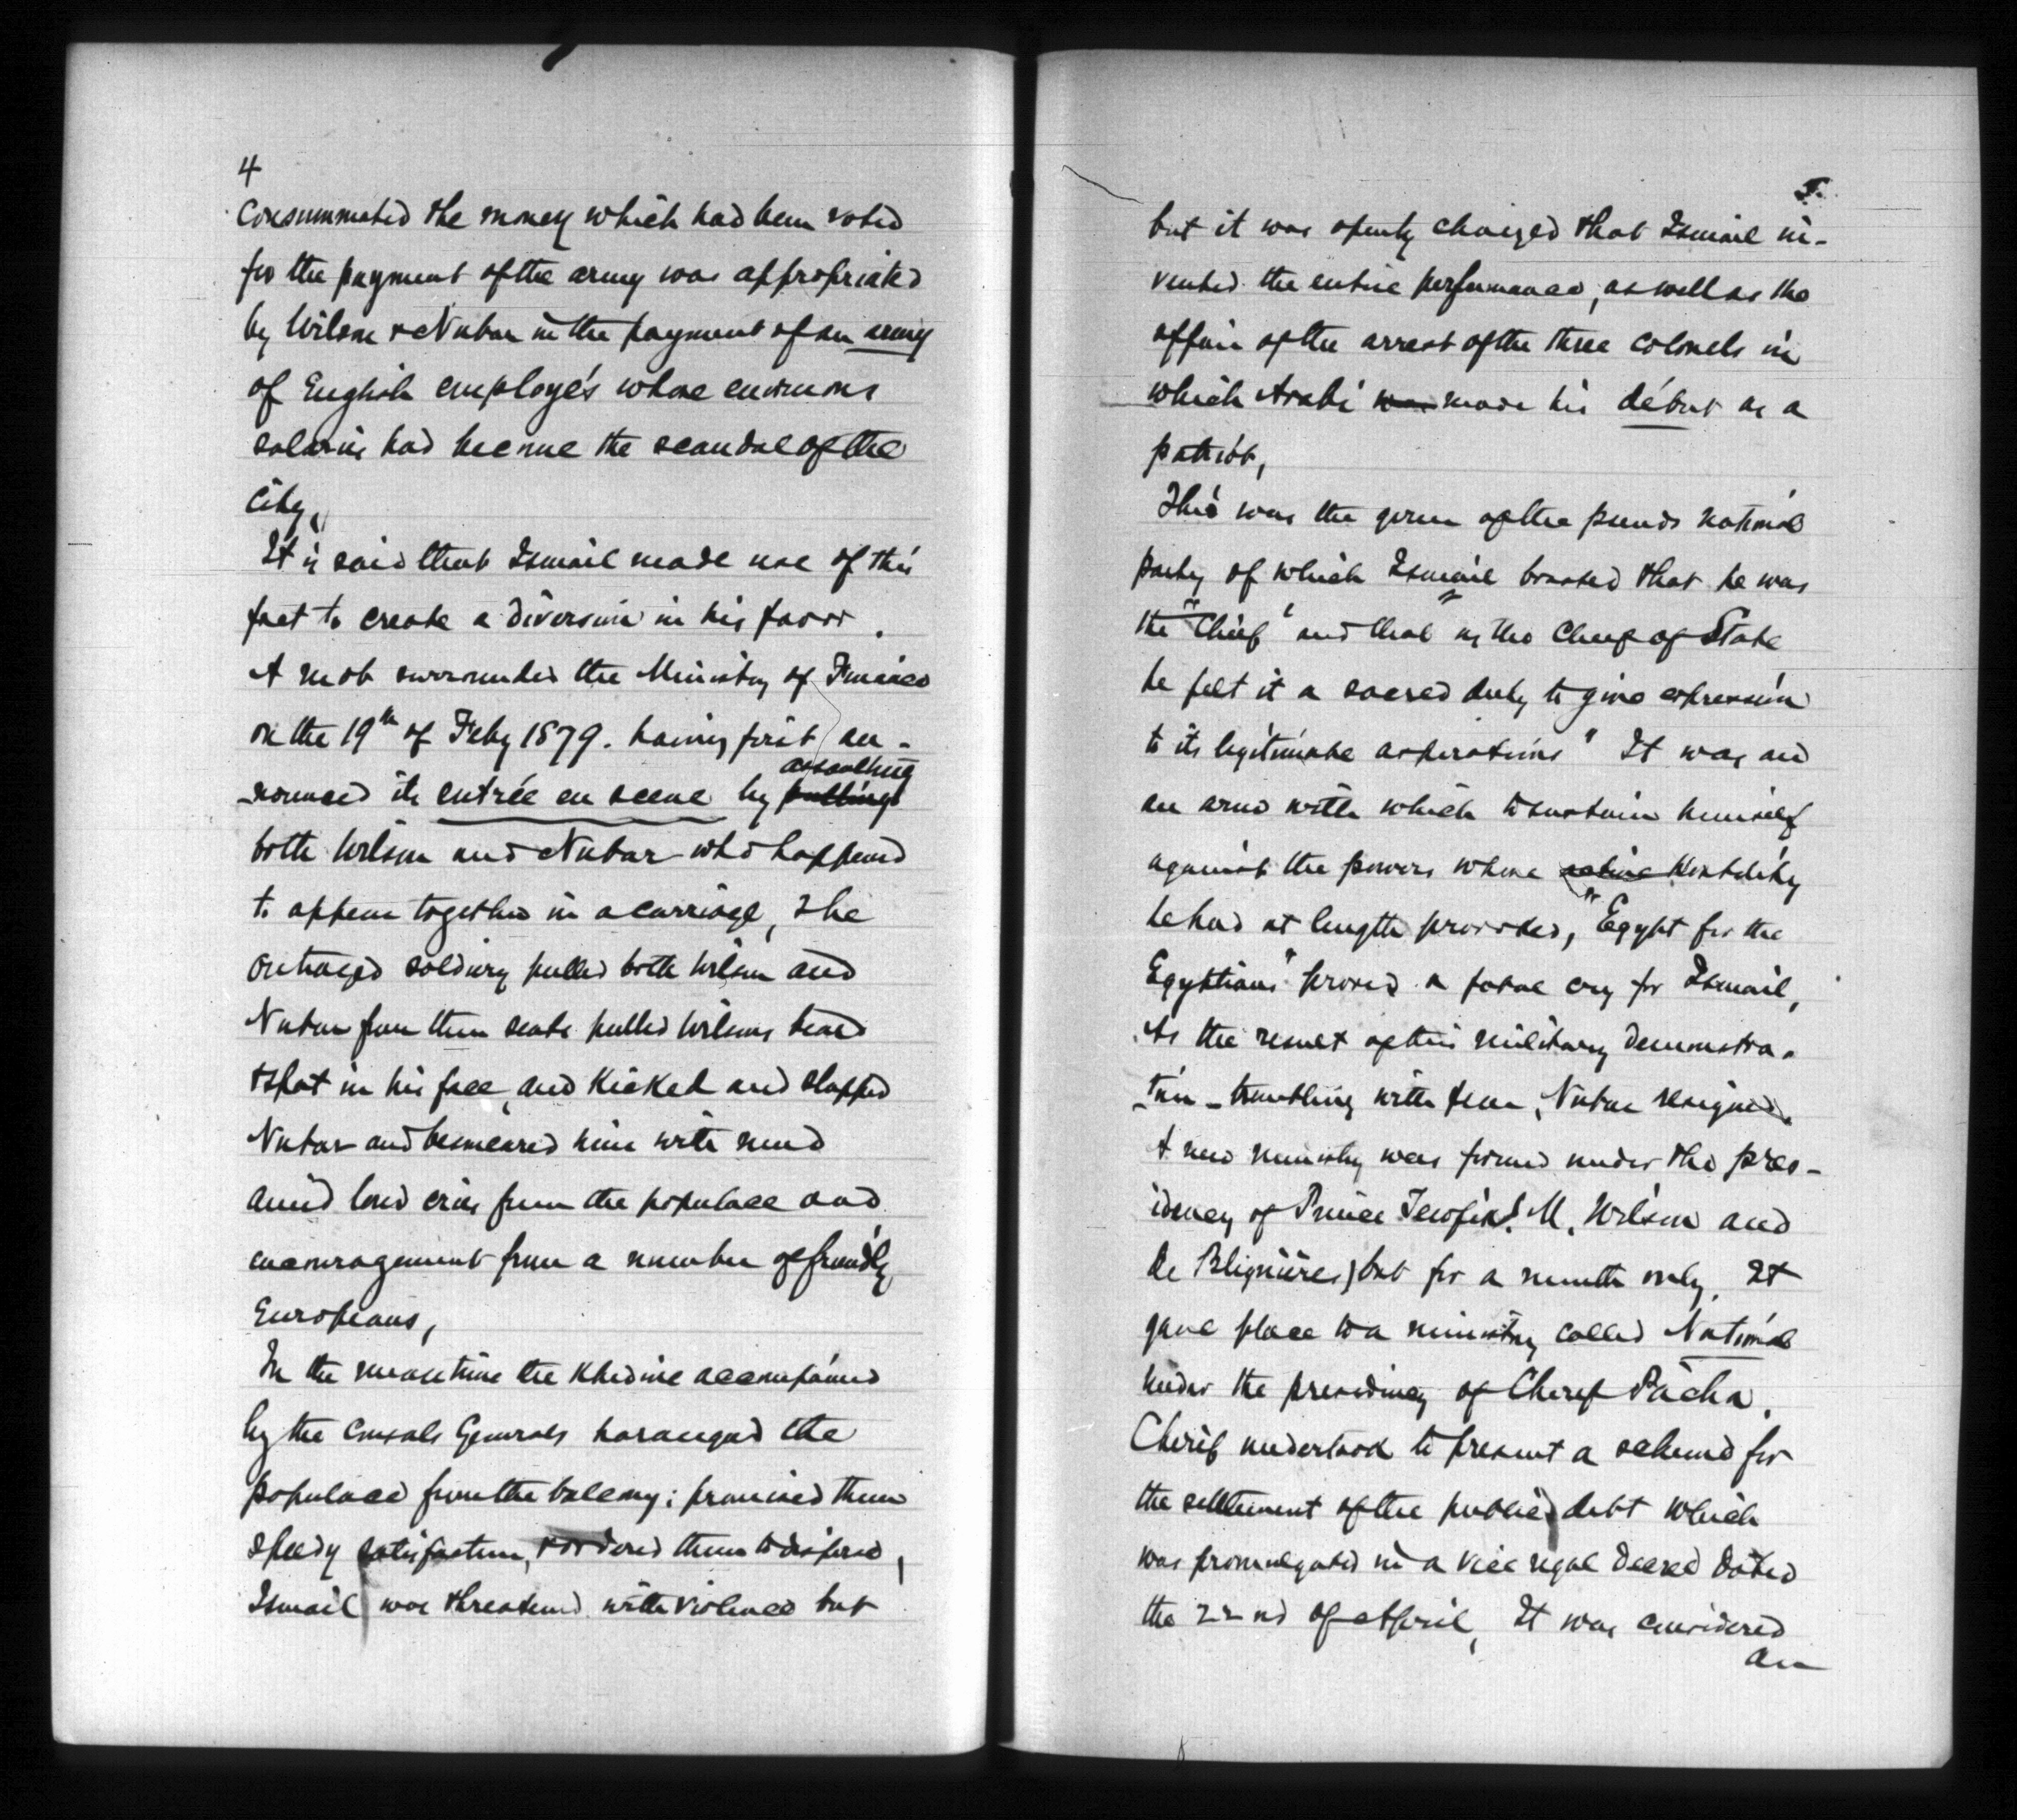 4
consummated the money which had been voted
for the payment of the army was appropriated
by Wilson & Nubar in the payment of an army
of English employés whose enormous
salaries had become the scandal of the
City,
It is said that Ismail made use of this
fact to create a diversion in his favor.
A mob surrounded the Ministry of Finance
on the 19th of Feby 1879. having first an-
-nounced its entrée en scene by pulling assaulting
both Wilson and Nubar who happened
to appear together in a carriage, The
outraged soldiery pulled both Wilson and
Nubar from their seats pulled Wilsons beard
& spat in his face, and kicked and slapped
Nubar and besmeared him with mud
amid loud cries from the populace and
encouragement from a number of friendly
Europeans,
In the meantime the Khedive accompanied
by the Consuls Generals harangued the
populace from the balcony; promised them
speedy satisfaction, & ordered them to disperse,
Ismail was threatened with violence but
5.
but it was openly charged that Ismail in-
vented the entire performance, as well as the
affair of the arrest of the three colonels in
which Arabi was made his début as a
patriot,
This was the germ of the pseudo national
party of which Ismail boasted that he was
the "Chief" and that "as the Chief of State
he felt it a sacred duty to give expression
to its legitimate aspirations" It was
an arm with which to sustain himself
against the powers whose active Hostility
he had at length provoked, "Egypt for the
Egyptians" proved a fatal cry for Ismail,
As the result of this military demonstra-
-tion - trembling with fear, Nubar resigned.
A new ministry was formed under the pres-
idency of Prince Tewfik M. Wilson and
de Blignières) but for a month only, It
gave place to a ministry called National
under the presidency of Cherif Pacha.
Cherif undertook to present a scheme for
the settlement of the public debt which
was promulgated in a vice regal decree dated
the 22nd of April, It was considered
an